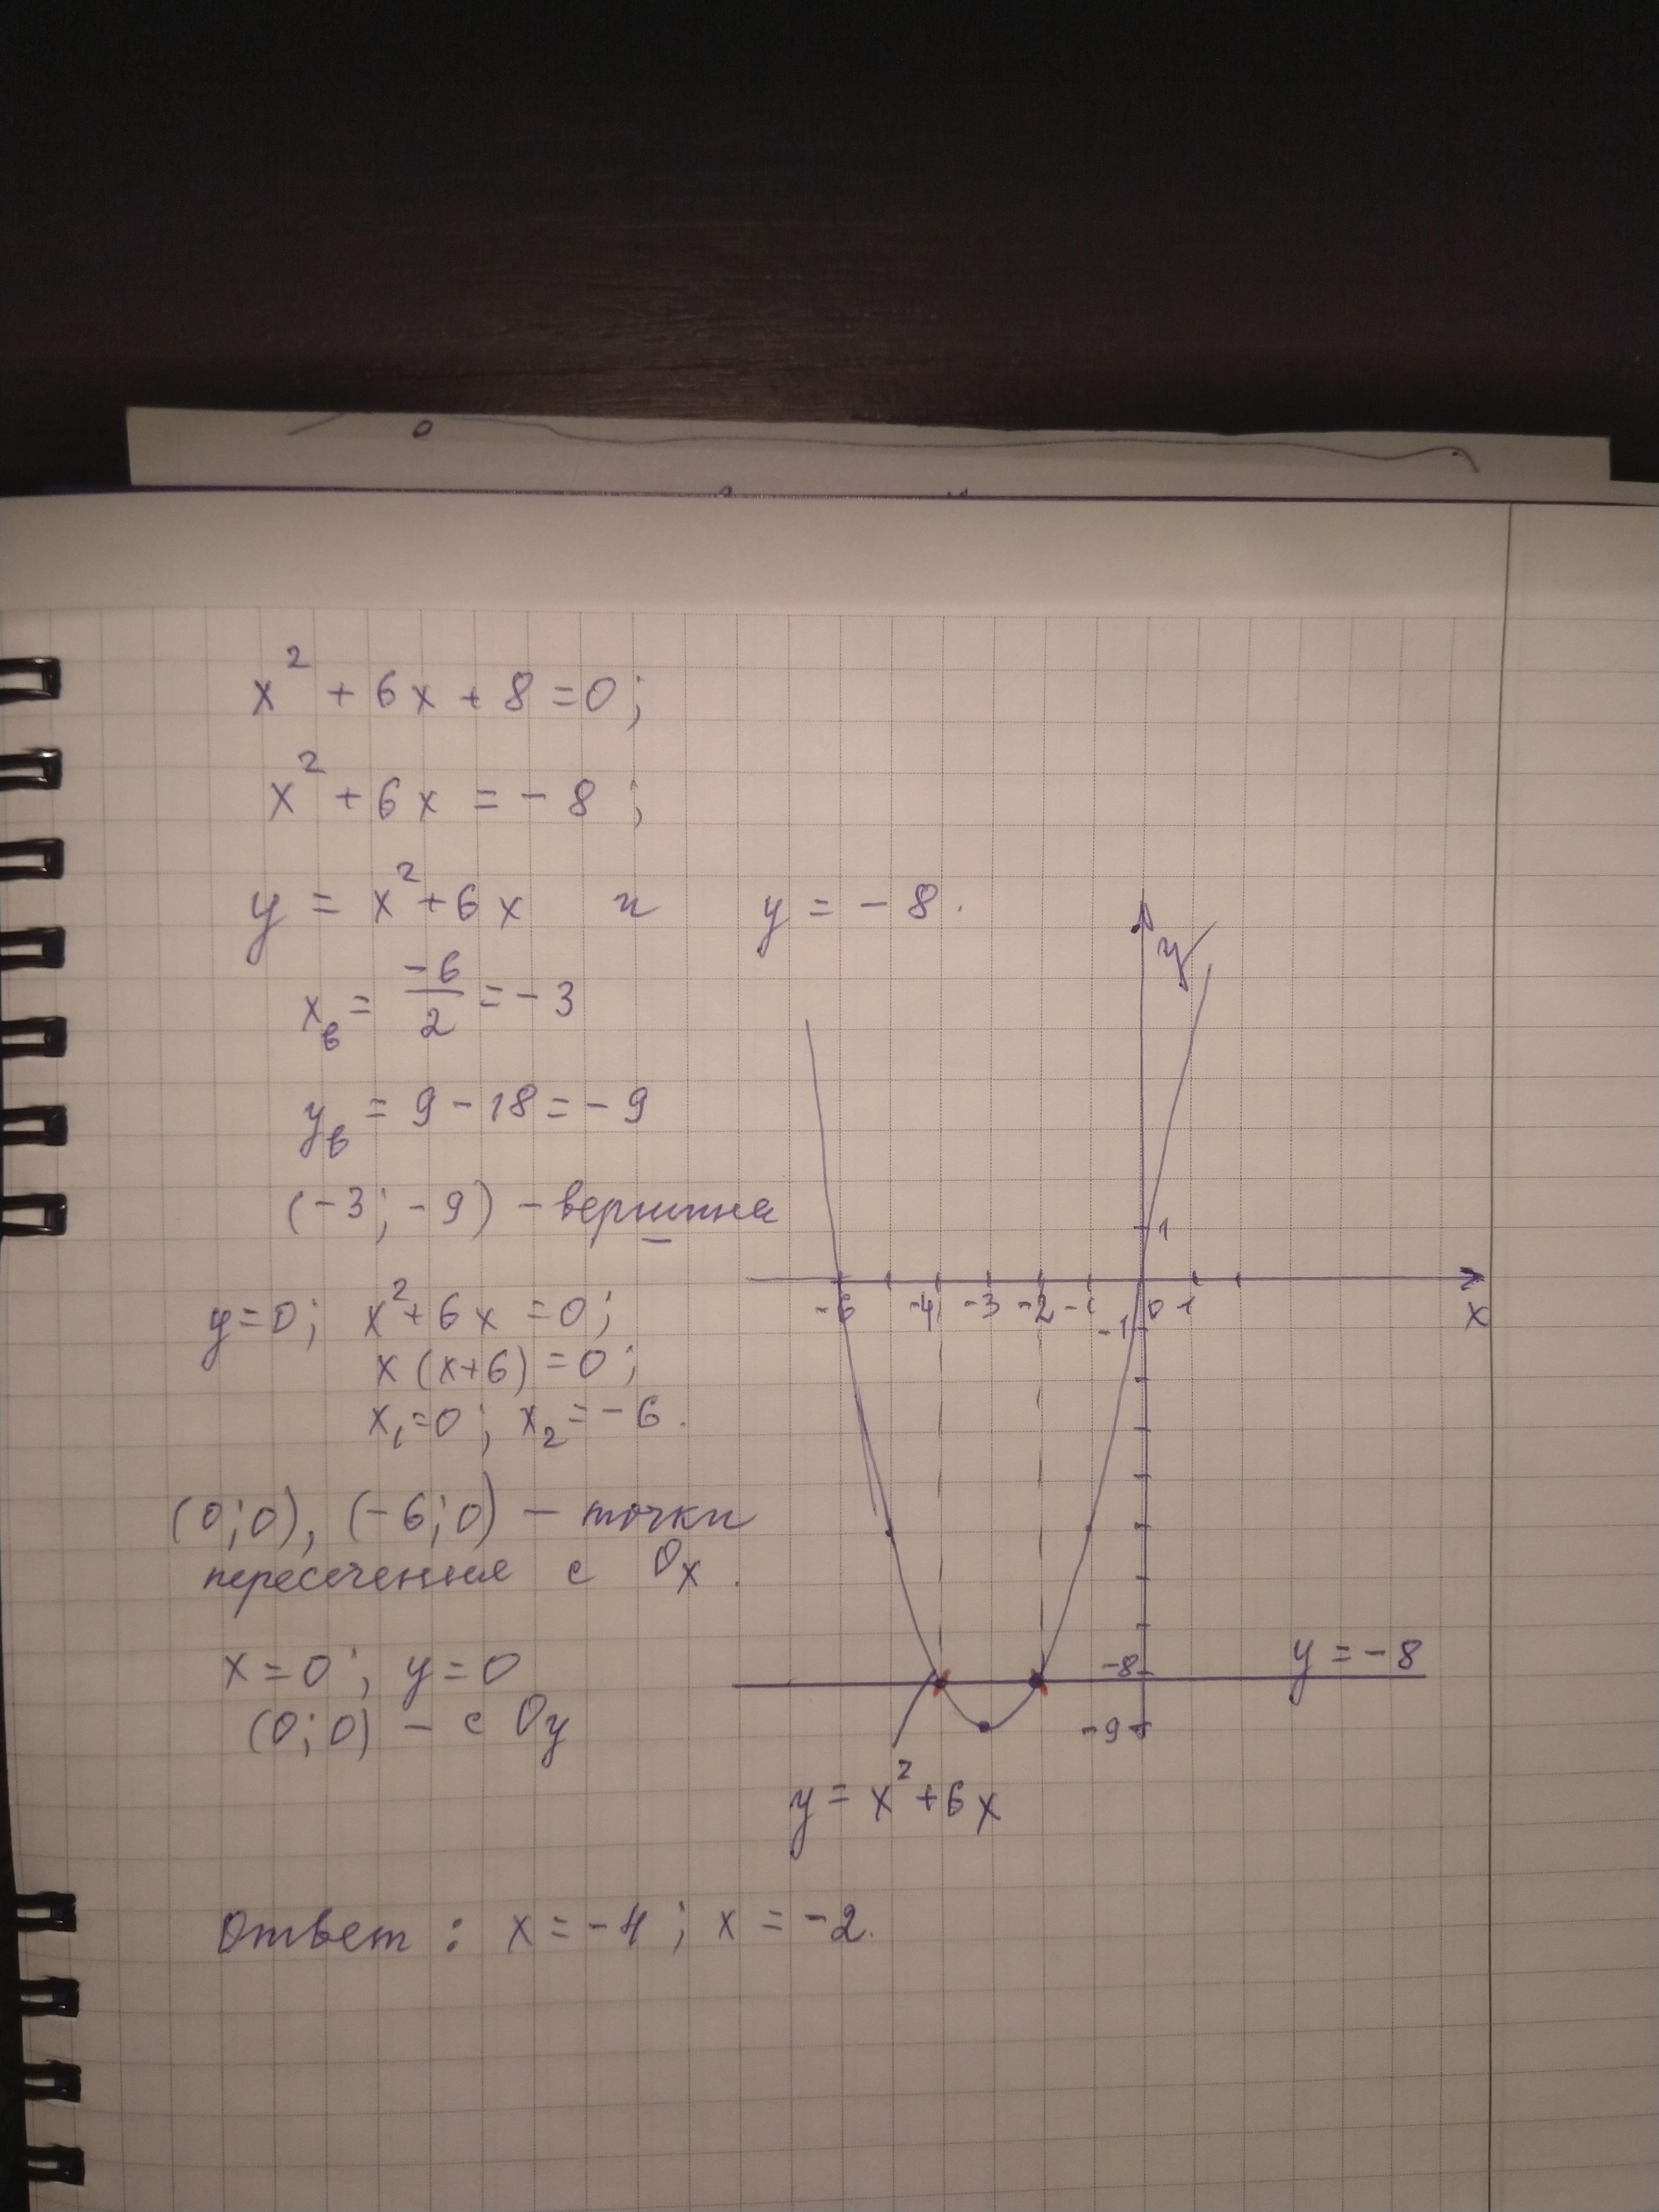 x² + 6x + 8 = 0;
x² + 6x = - 8 ;
y = x² + 6x и y = - 8.
xв = -6/2 = - 3
yв = 9 - 18 = - 9
(-3; -9) - вершина
y=0; x² + 6x = 0;
x (x+6) = 0;
x₁=0; x₂ = -6.
(0;0), (-6;0) - точки
пересечения с Ox.
x = 0; y = 0
(0;0) - с Oy
y
1
-6 -4 -3 -2 -1 0 1
x
-1
-8
y = -8
-9
y = x² + 6x
Ответ : x = -4 ; x = -2.